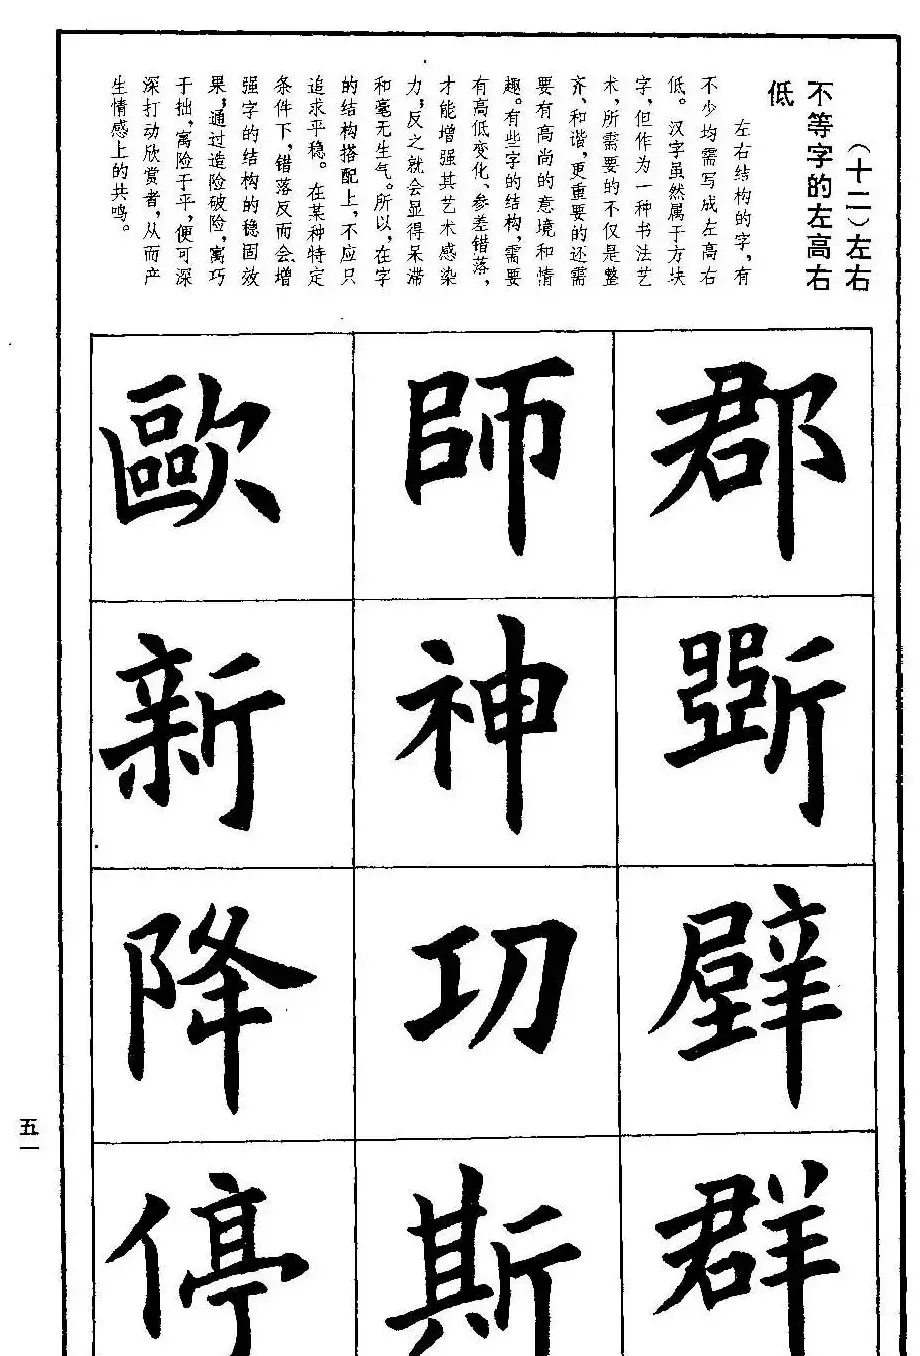 （十二）左右
不等字的左高右
低
左右结构的字，有
不少均需写成左高右
低。汉字虽然属于方块
字，但作为一种书法艺
术，所需要的不仅是整
齐、和谐，更重要的还需
要有高尚的意境和情
趣。有些字的结构，需要
有高低变化、参差错落，
才能增强其艺术感染
力；反之就会显得呆滞
和毫无生气。所以，在字
的结构搭配上，不应只
追求平稳。在某种特定
条件下，错落反而会增
强字的结构的稳固效
果；通过造险破险，寓巧
于拙，寓险于平，便可深
深打动欣赏者，从而产
生情感上的共鸣。
郡
壁
群
師
神
㓛
斯
歐
新
降
停
五一